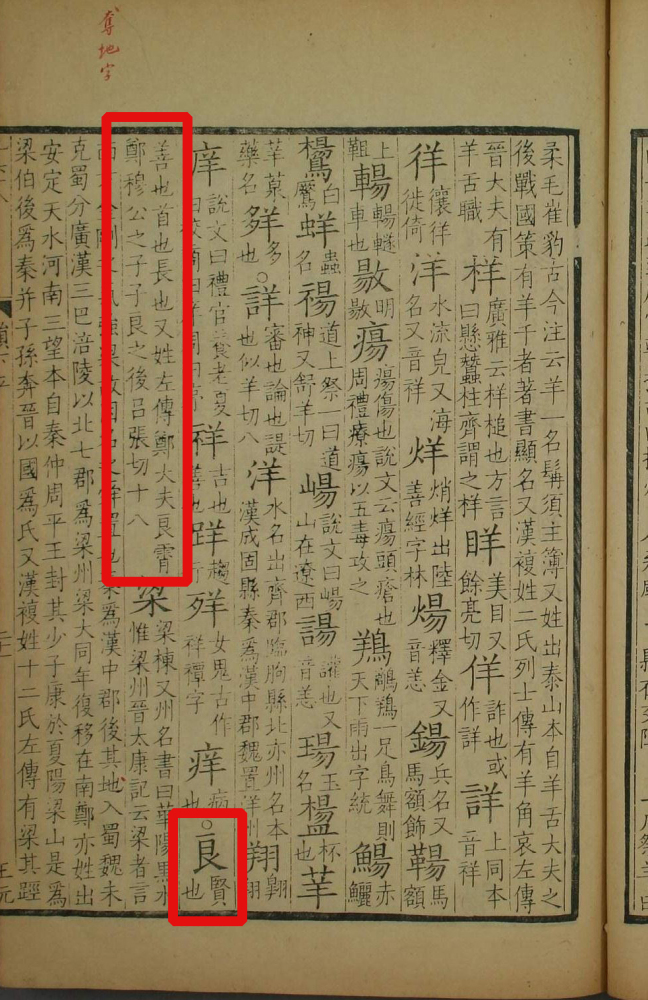 奪地字
柔毛崔豹古今注云羊一名髯須主簿又姓出泰山本自羊舌大夫之
後戰國策有羊千者著書顯名又漢複姓二氏列士傳有羊角哀左傳
晉大夫有羊舌職 样廣雅云样槌也方言曰懸蠶柱齊謂之样 眻美目又餘亮切 佯詐也或作詳 詳上同本音祥
徉忀徉徙倚 洋水流皃又海名又音祥 烊焇烊出陸善經字林 煬釋金又音恙 鍚兵名又馬額飾 馬額
上靼 輰輰䡵車也 敭明敭 瘍瘍傷也說文云瘍頭瘡也周禮療瘍以五毒攻之 鸉鸍鸉一足鳥舞則天下雨出字統 鰑赤鱺
鸉白鷢 蛘蟲名 禓道上祭一曰道神又舒羊切 崵說文曰崵山在遼西 諹讙也又音恙 瑒玉名 杯也
藥名 多也○詳審也論也諟也似羊切八 洋水名出齊郡臨朐縣北亦州名本漢成固縣秦爲漢中郡魏置洋州 翔翺翔
庠說文曰禮官養老夏曰校商曰庠周曰序 祥吉也善也 趨行 女鬼古作祥禫字 痒病也○良賢也
善也首也長也又姓左傳鄭大夫良霄鄭穆公之子子良之後呂張切十八 梁梁棟又州名書曰華陽黑水惟梁州晉太康記云梁者言
西方金剛之氣強梁故因名之 也秦爲漢中郡後其地入蜀魏末
克蜀分廣漢三巴涪陵以北七郡爲梁州梁大同年復移在南鄭亦姓出
安定天水河南三望本自秦仲周平王封其少子康於夏陽梁山是爲
梁伯後爲秦并子孫奔晉以國爲氏又漢複姓十二氏左傳有梁其踁